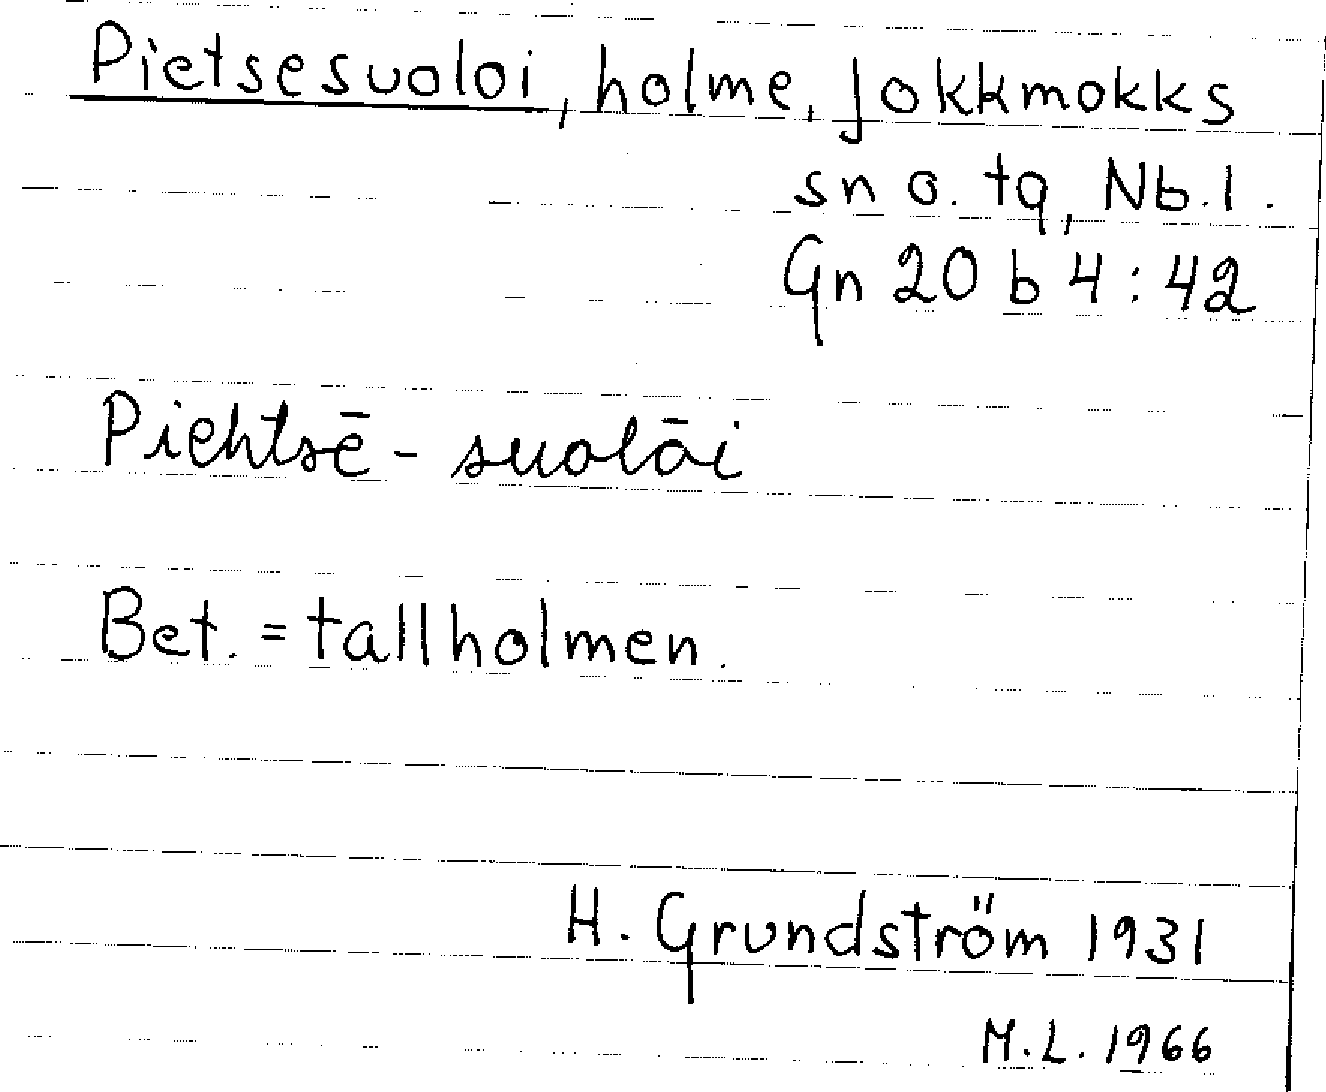 Pietsesuoloi, holme, Jokkmokks
sn o. tg, Nb.l.
Gn 20 b 4:42
Piehtsē-suolāi
Bet. = tallholmen.
H. Grundström 1931
M.L. 1966